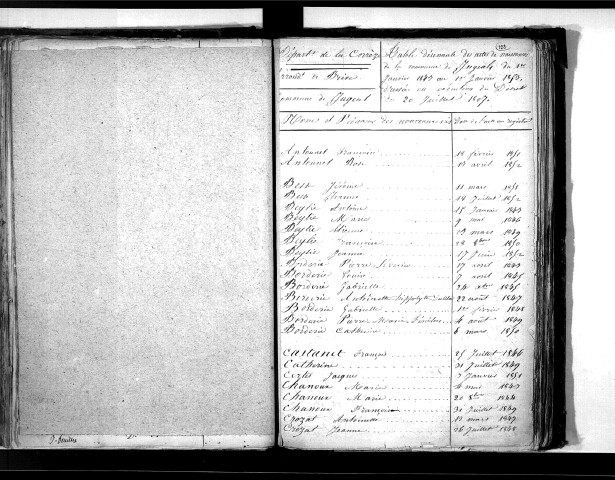 Départt de la Corrèze
arrondt de Brive
Commune de Jugeal
Table décennale des actes de naissances
de la commune de Jugeals du 1er
Janvier 1843 au 1er Janvier 1853,
dressée en exécution du Décret
du 20 Juillet 1807.
Noms et Prénoms des nouveaux nés
Antounet François 18 février 1851
Antounet 13 avril 1852
Jérôme 11 mars 1851
Jeanne 18 Juillet 1852
Beylie Antoine 15 Janvier 1843
Beylie Marie 9 mai 1846
Beylie Etienne 13 mars 1849
Beylie 28 8bre 1850
Beylie Jeanne 17 Juin 1852
Borderie Pierre 17 avril 1843
Borderie Louise 7 avril 1845
Borderie Gabrielle 1845
Borderie Antoinette 22 août 1847
Borderie Gabrielle 1er février 1848
Borderie Pierre Marie 4 août 1849
Borderie Catherine 6 mars 1850
Castanet François 25 Juillet 1846
Catherine 31 Juillet 1849
Jacques 7 Janvier 1851
Chanoux Marie 4 mai 1843
Chanoux Marie 20 8bre 1844
Chanoux Françoise 31 Juillet 1849
Crozat Antoinette 13 mars 1847
Crozat Jeanne 26 Juillet 1848